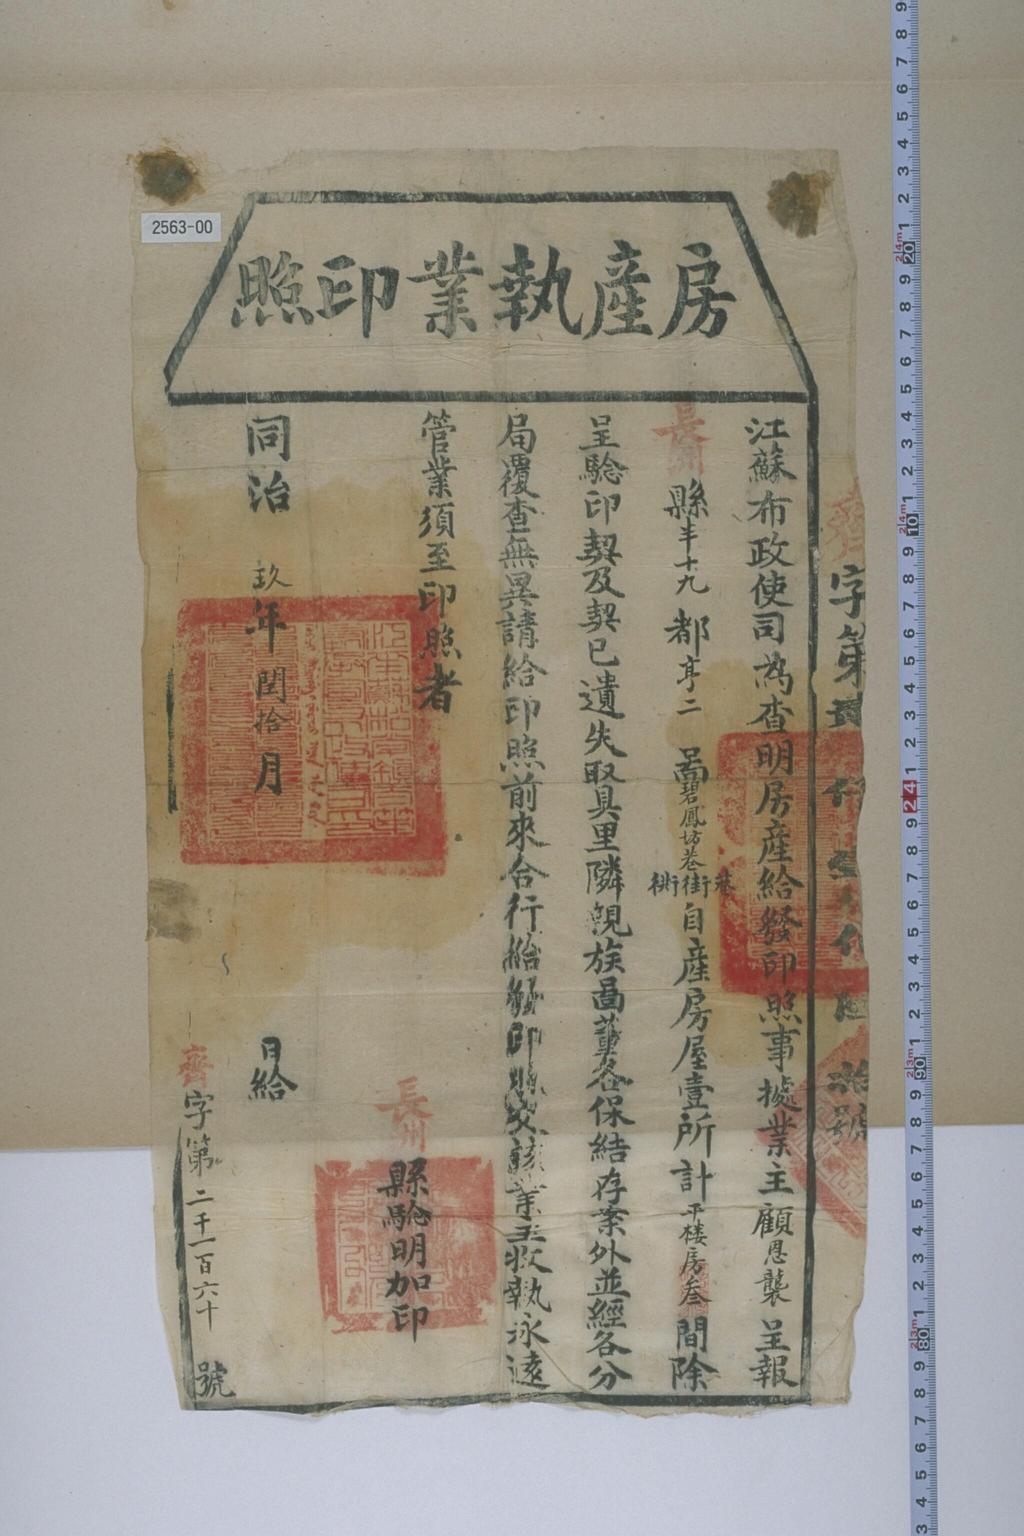 2563-00
房產執業印照
江蘇布政使司為查明房產給發印照事據業主顧恩襲呈報
長洲縣半十九都亨二啚碧鳳坊巷街自產房屋壹所計平樓房叁間除
呈驗印契及契已遺失取具里隣親族啚董各保結存案外並經各分
局覆查無異請給印照前來合行給發印照交該業主收執永遠
管業須至印照者
長洲縣驗明加印
同治玖年閏拾月日給
齊字第二千一百六十號
字第
號